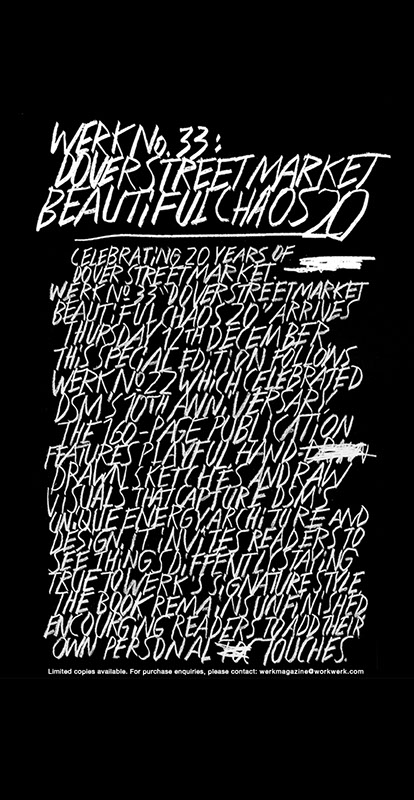 WERK No. 33:
DOVER STREET MARKET
BEAUTIFUL CHAOS 20
CELEBRATING 20 YEARS OF
DOVER STREET MARKET.
WERK No 33 'DOVER STREET MARKET
BEAUTIFUL CHAOS 20' ARRIVES
THURSDAY 12TH DECEMBER.
THIS SPECIAL EDITION FOLLOWS
WERK No 22 WHICH CELEBRATED
DSM'S 10TH ANNIVERSARY.
THE 160-PAGE PUBLICATION
FEATURES PLAYFUL HAND-
DRAWN SKETCHES AND RAW
VISUALS THAT CAPTURE DSM'S
UNIQUE ENERGY, ARCHITURE AND
DESIGN. IT INVITES READERS TO
SEE THINGS DIFFERENTLY. STAYING
TRUE TO WERK'S SIGNATURE STYLE
THE BOOK REMAINS UNFINISHED
ENCOURGING READERS TO ADD THEIR
OWN PERSONAL TOUCHES.
Limited copies available. For purchase enquiries, please contact: werkmagazine@workwerk.com